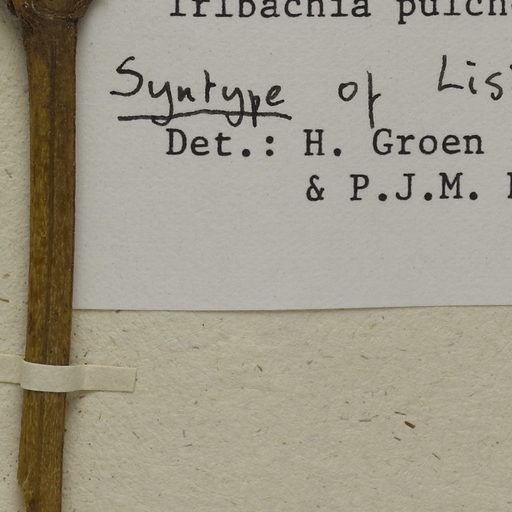 Irlbachia pulch
Syntype of Lis
Det.: H. Groen
& P.J.M.